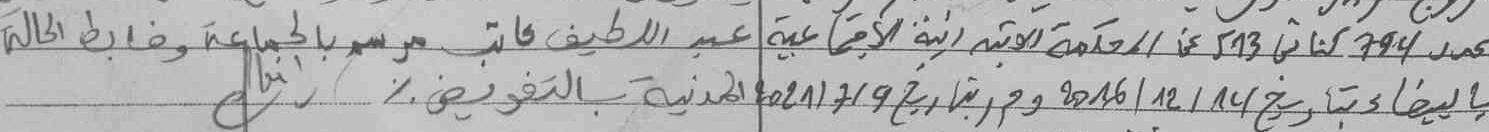 عدد 794 كناش 513 عن المحكمة الابتدائية الاجتماعية عبد اللطيف كاتب مرسم بالجماعة وضابط الحالة
بالبيضاء بتاريخ 2016/12/14 وحرر بتاريخ 2021/7/9 المدنية بالتفويض ./.